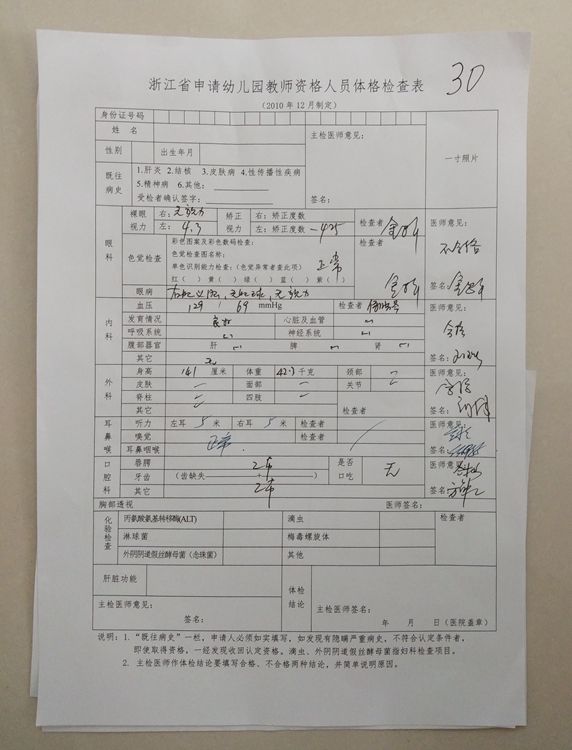 浙江省申请幼儿园教师资格人员体格检查表
30
（2010 年 12 月制定）
身份证号码
姓 名
主检医师意见：
一寸照片
性别 出生年月
既往病史
1.肝炎 2.结核 3.皮肤病 4.性传播性疾病
5.精神病 6.其他：
受检者确认签字：
签名：
眼科
裸眼视力 右：无视力 矫正视力 右：矫正度数 检查者 医师意见：
左：4.3 左：矫正度数 -425 不合格
色觉检查
彩色图案及彩色数码检查： 检查者
色觉检查图名称： 正常
单色识别能力检查：（色觉异常者查此项）
红（ ）黄（ ）绿（ ）蓝（ ）紫（ ）
眼病 无视力 签名：
内科
血压 129 / 69 mmHg 检查者 医师意见：
发育情况 良好 心脏及血管
呼吸系统 神经系统 合格
腹部器官 肝 脾 肾
其它 无 签名：
外科
身高 141 厘米 体重 42.3 千克 颈部 医师意见：
皮肤 面部 关节
脊柱 四肢
其它 检查者 签名：
耳鼻喉
听力 左耳 5 米 右耳 5 米 检查者 医师意见：
嗅觉 正常 检查者
耳鼻咽喉 签名：
口腔科
唇腭 正常 是否口吃 无 医师意见：
牙齿 （齿缺失 ）
其它 正常 签名：
胸部透视 医师签名：
化验检查
丙氨酸氨基转移酶(ALT) 滴虫 检查者
淋球菌 梅毒螺旋体
外阴阴道假丝酵母菌（念珠菌） 其他
肝脏功能
体检结论
主检医师意见： 主检医师签名：
签名： 年 月 日（医院盖章）
说明：1.“既往病史”一栏，申请人员必须如实填写，如发现有隐瞒严重病史，不符合认定条件者，
即使取得资格，一经发现收回认定资格。滴虫、外阴阴道假丝酵母菌指妇科检查项目。
2. 主检医师作体检结论要填写合格、不合格两种结论，并简单说明原因。